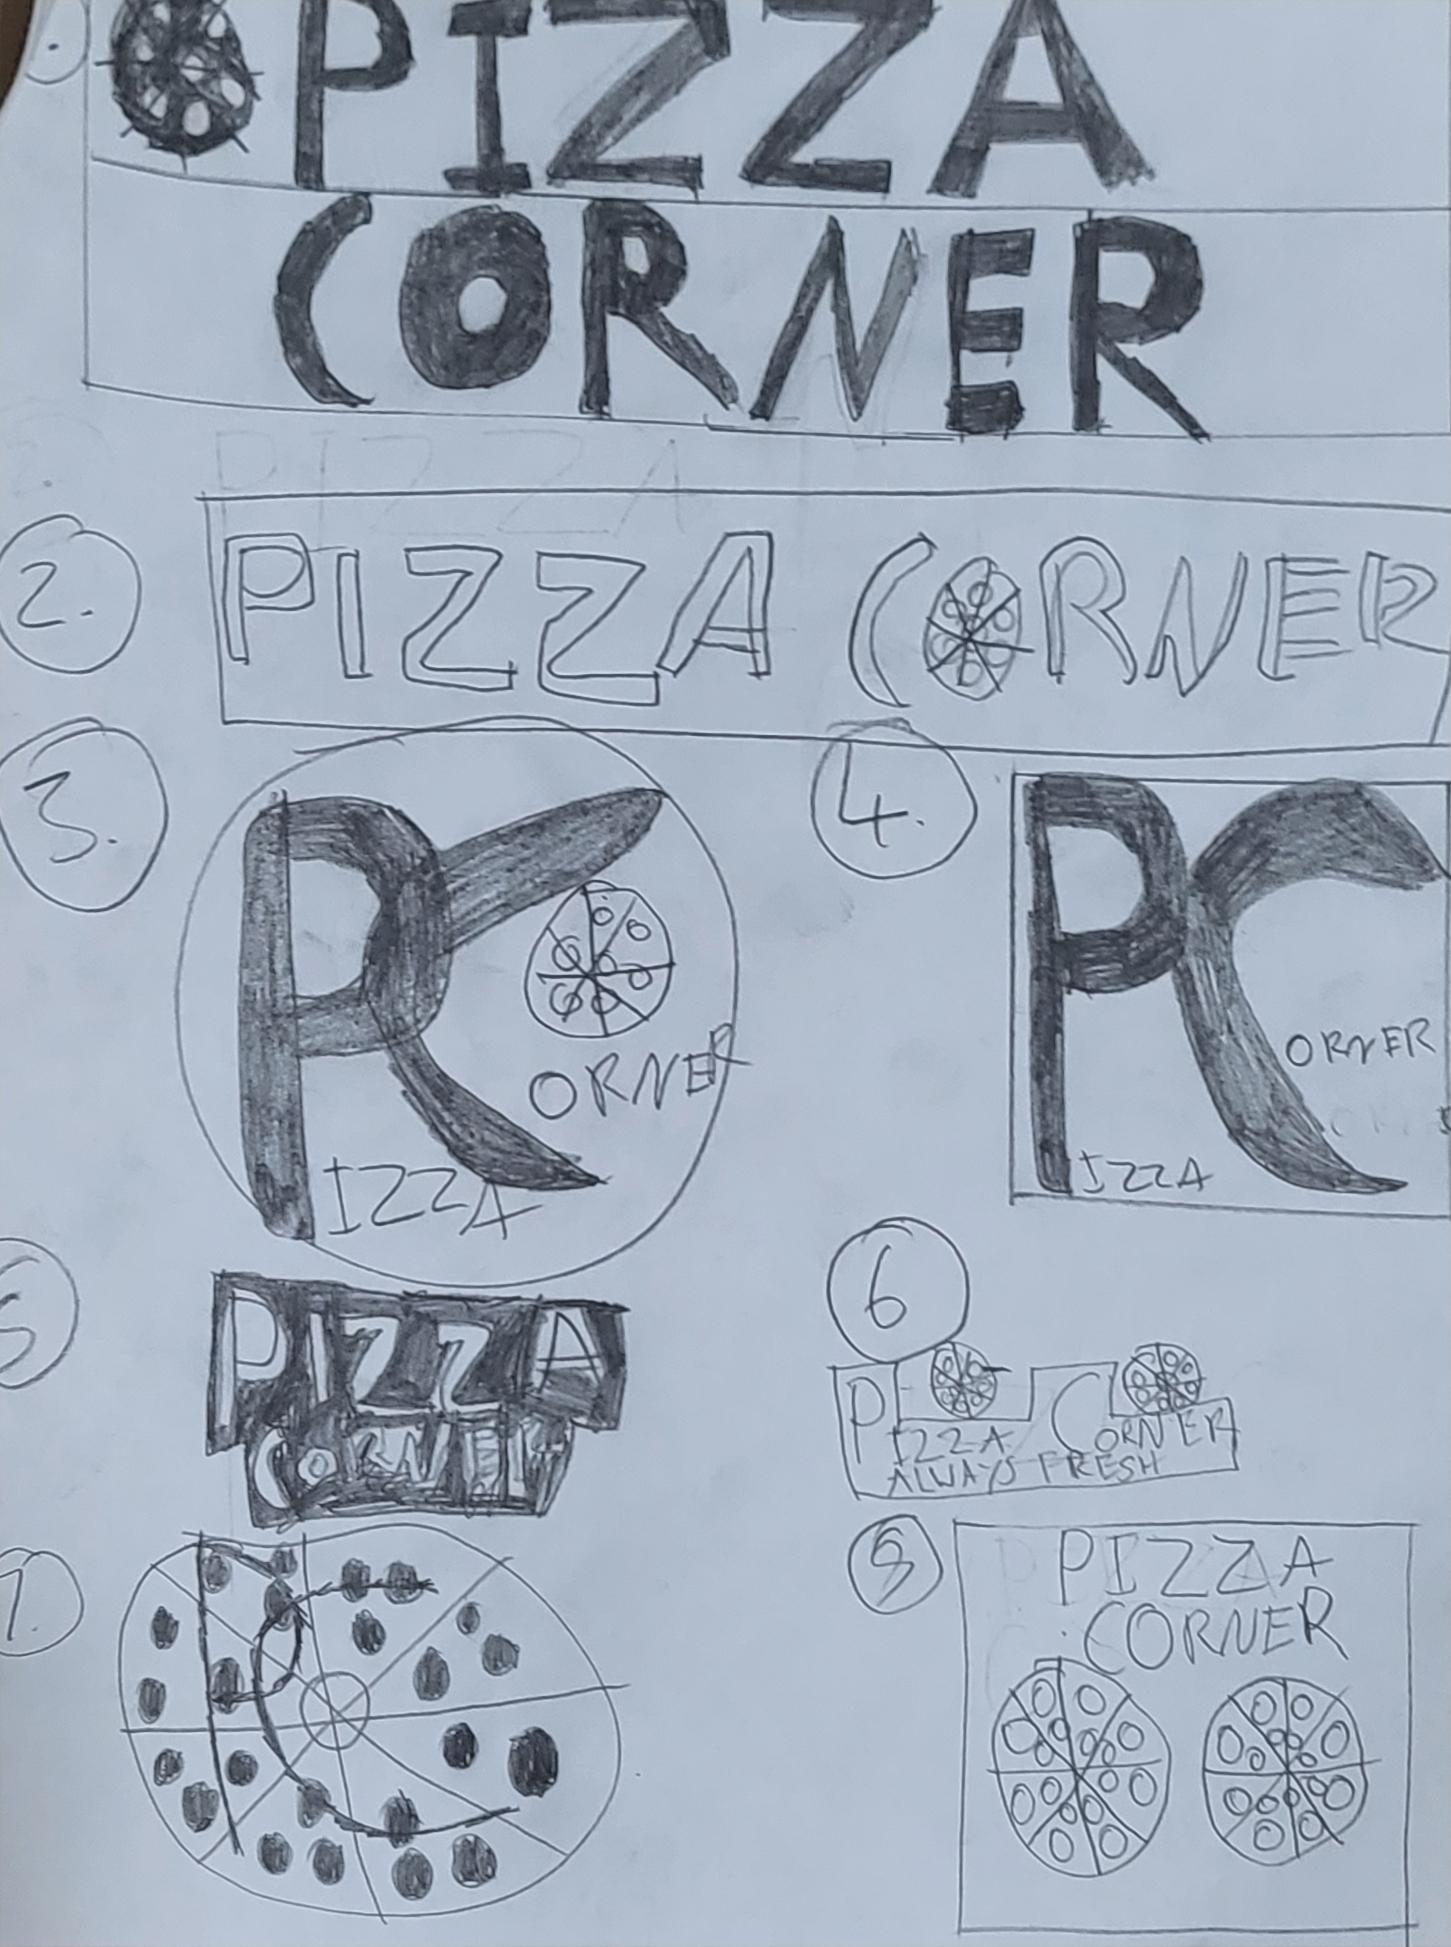 PIZZA
CORNER
PIZZA
2.
PIZZA CORNER
3.
PC
ORNER
IZZA
4.
PC
ORNER
IZZA
5
PIZZA
CORNER
6
PIZZA CORNER
ALWAYS FRESH
7.
PC
8
PIZZA
CORNER